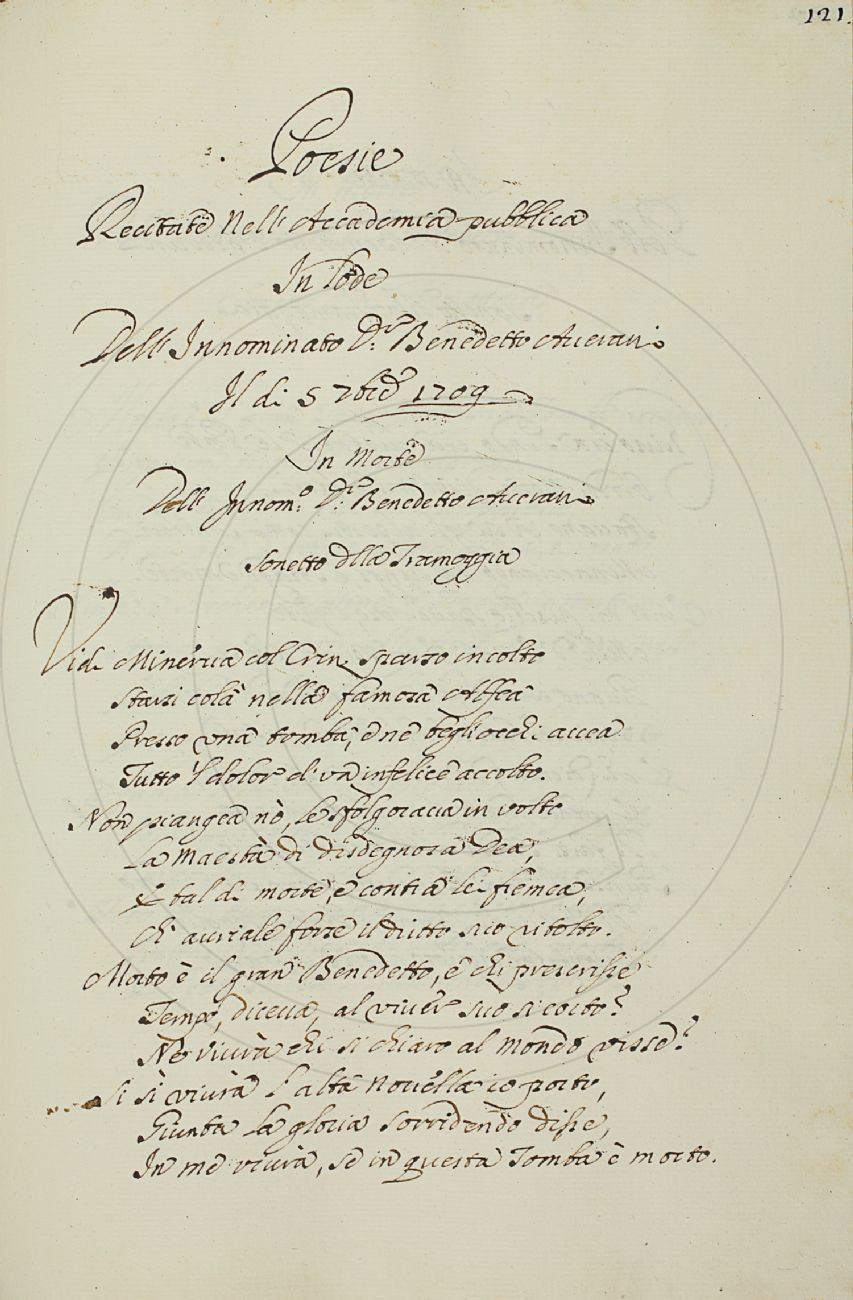 121.
Poesie
Recitate Nell' Accademia pubblica
In lode
Dell' Innominato D.r Benedetto Averani
Il di 5 7bre 1709
In Morte
Dell' Innom.o D.r Benedetto Averani
Sonetto della Tramoggia
Vidi Minerva col Crin sparso incolto
Starsi colà nella famosa Alfea
Presso una tomba, e ne begliocchi accea
Tutto 'l dolor d'un infelice accolto.
Non piangea nò, le sfolgorava in volto
La Maestà di disdegnosa Dea,
E tal di morte, e contra lei fremea,
Ch' avriale forse il dritto suo ritolto.
Morto è il gran Benedetto, e chi prescrisse
Tempo, diceva, al viver suo si corto?
Ne vivrà chi si chiaro al Mondo visse?
Si si vivrà l'alta novella io porto,
Giunta la gloria sorridendo disse,
In me vivrà, se in questa Tomba è morto.